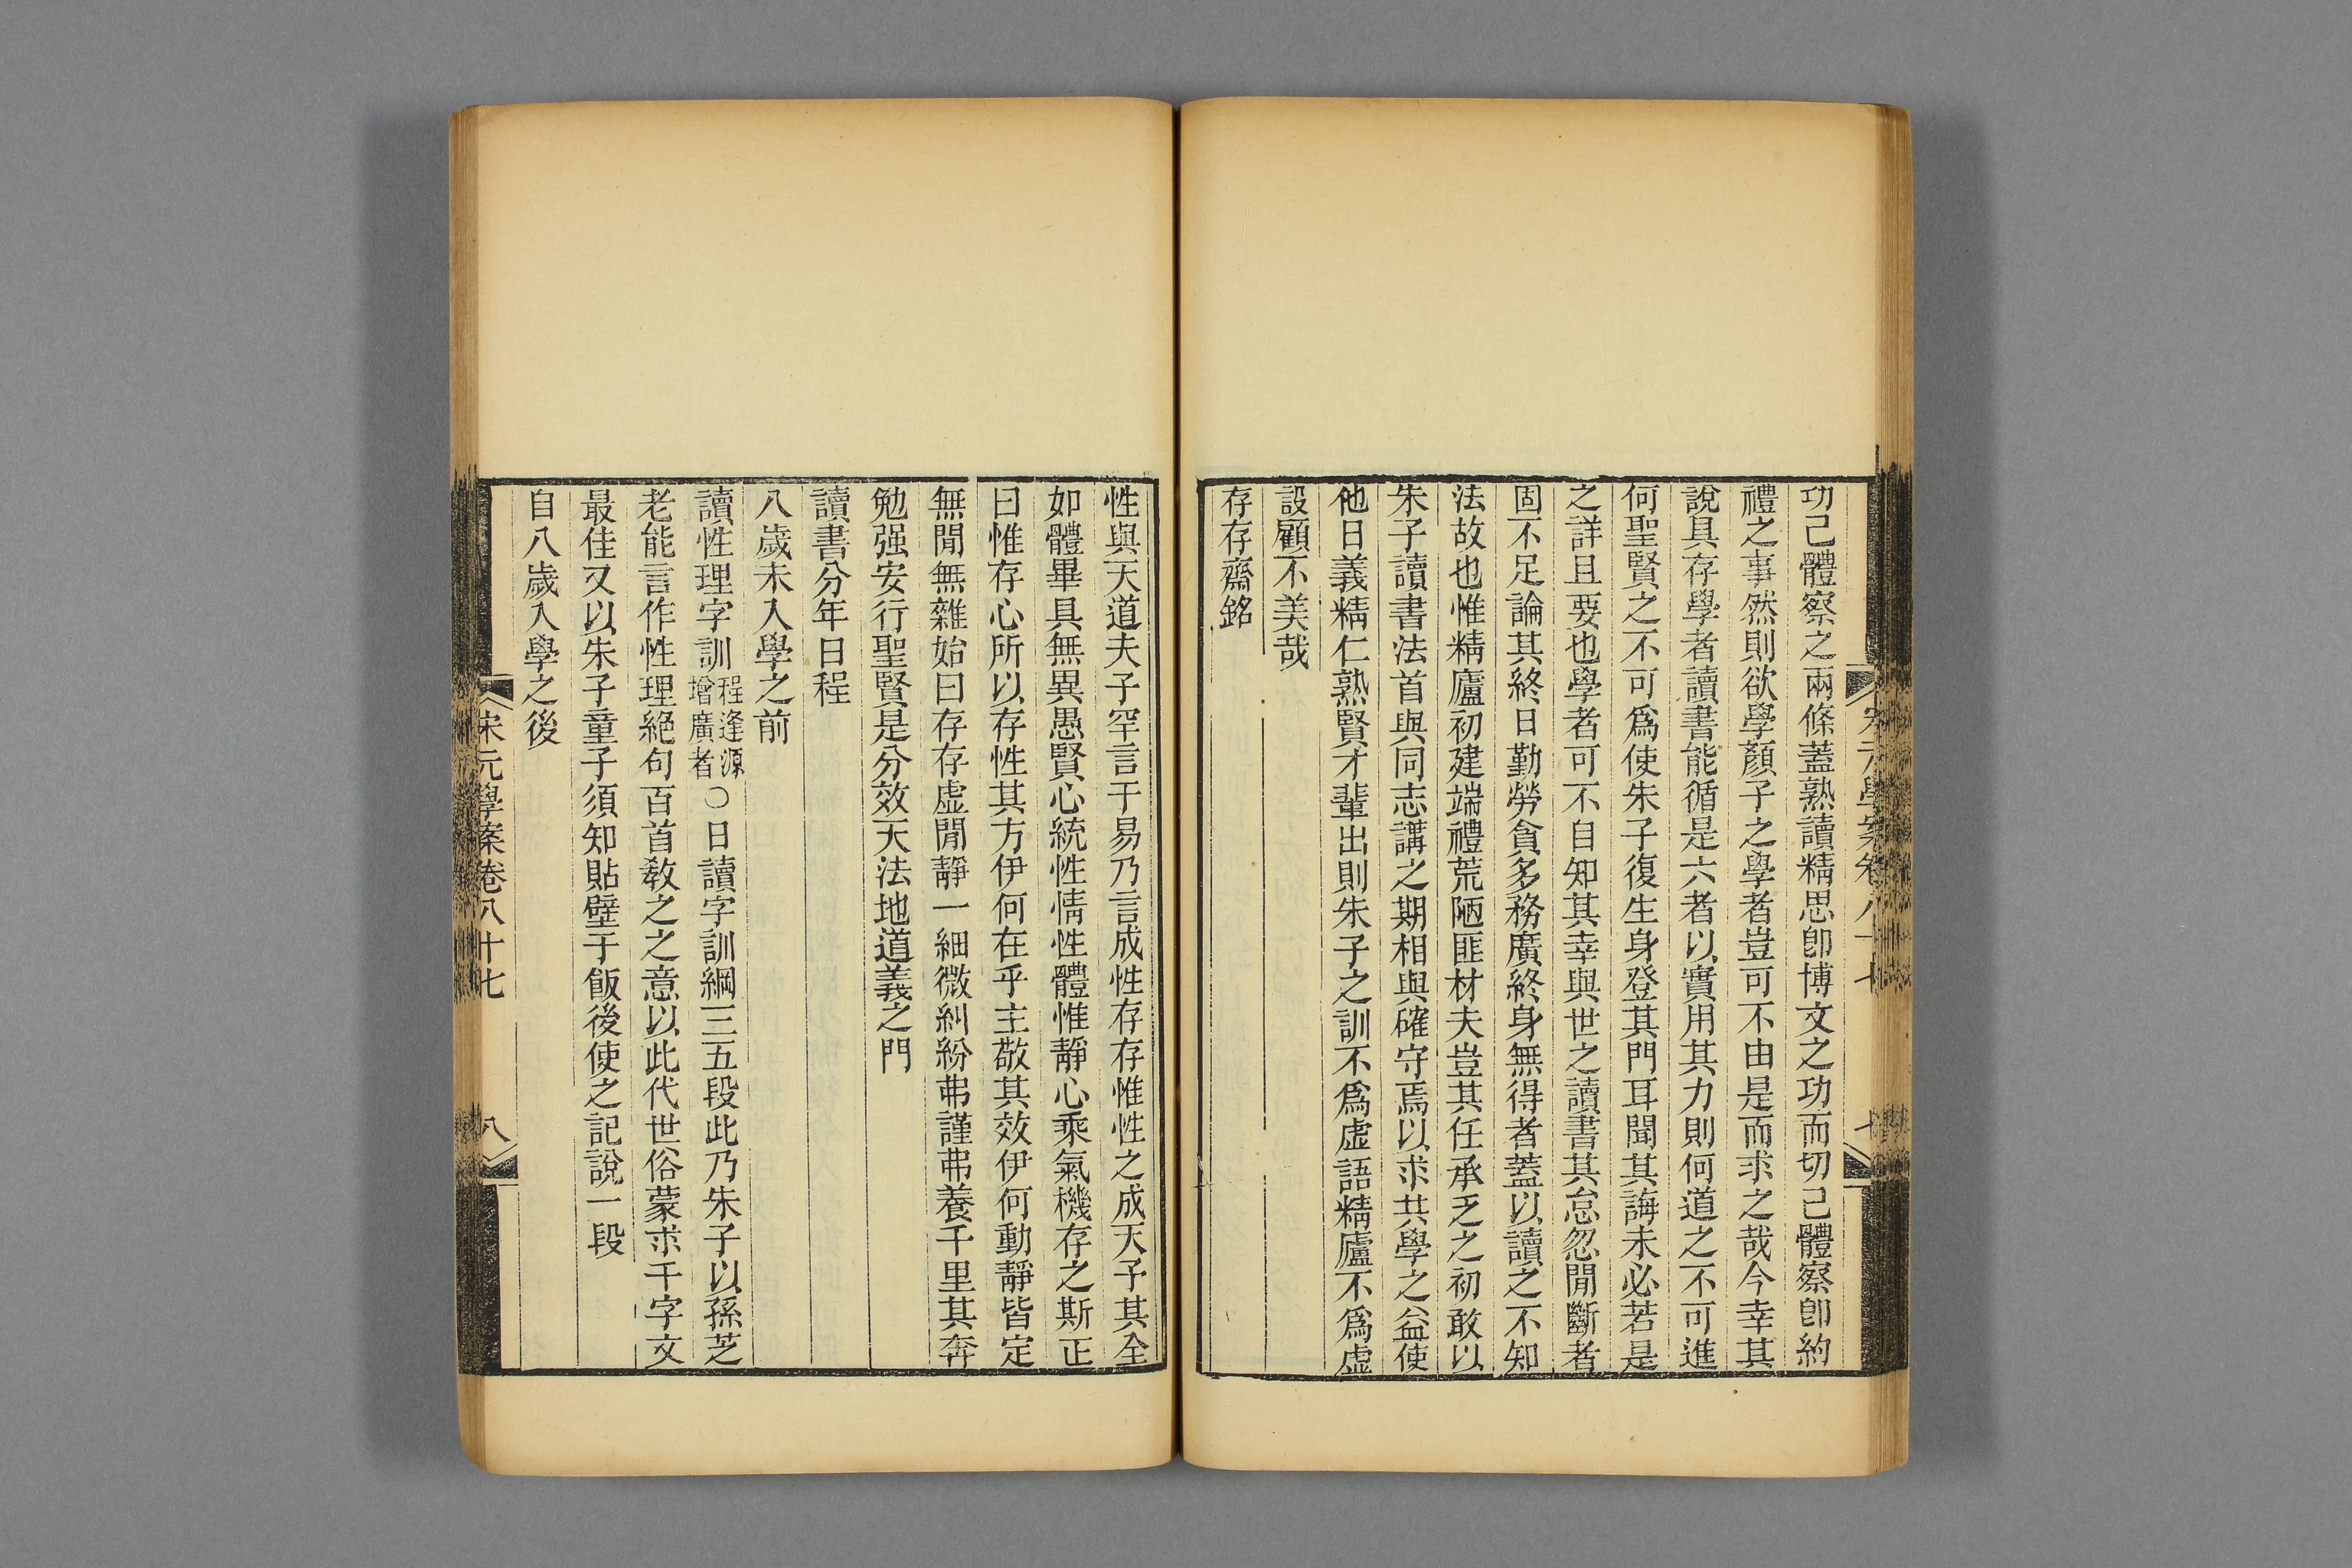 功己體察之兩條蓋熟讀精思卽博文之功而切己體察卽約
禮之事然則欲學顏子之學者豈可不由是而求之哉今幸其
說具存學者讀書能循是六者以實用其力則何道之不可進
何聖賢之不可爲使朱子復生身登其門耳聞其誨未必若是
之詳且要也學者可不自知其幸與世之讀書其怠忽閒斷者
固不足論其終日勤勞貪多務廣終身無得者蓋以讀之不知
法故也惟精廬初建端禮荒陋匪材夫豈其任承乏之初敢以
朱子讀書法首與同志講之期相與確守焉以求共學之益使
他日義精仁熟賢才輩出則朱子之訓不爲虛語精廬不爲虛
設顧不美哉
存存齋銘
性與天道夫子罕言于易乃言成性存存惟性之成天予其全
如體畢具無異愚賢心統性情性體惟靜心乘氣機存之斯正
曰惟存心所以存性其方伊何在乎主敬其效伊何動靜皆定
無閒無雜始曰存存虛閒靜一細微糾紛弗謹弗養千里其奔
勉强安行聖賢是分效天法地道義之門
讀書分年日程
八歲未入學之前
讀性理字訓程逢源增廣者○日讀字訓綱三五段此乃朱子以孫芝
老能言作性理絕句百首敎之之意以此代世俗蒙求千字文
最佳又以朱子童子須知貼壁于飯後使之記說一段
自八歲入學之後
宋元學案卷八十七
八